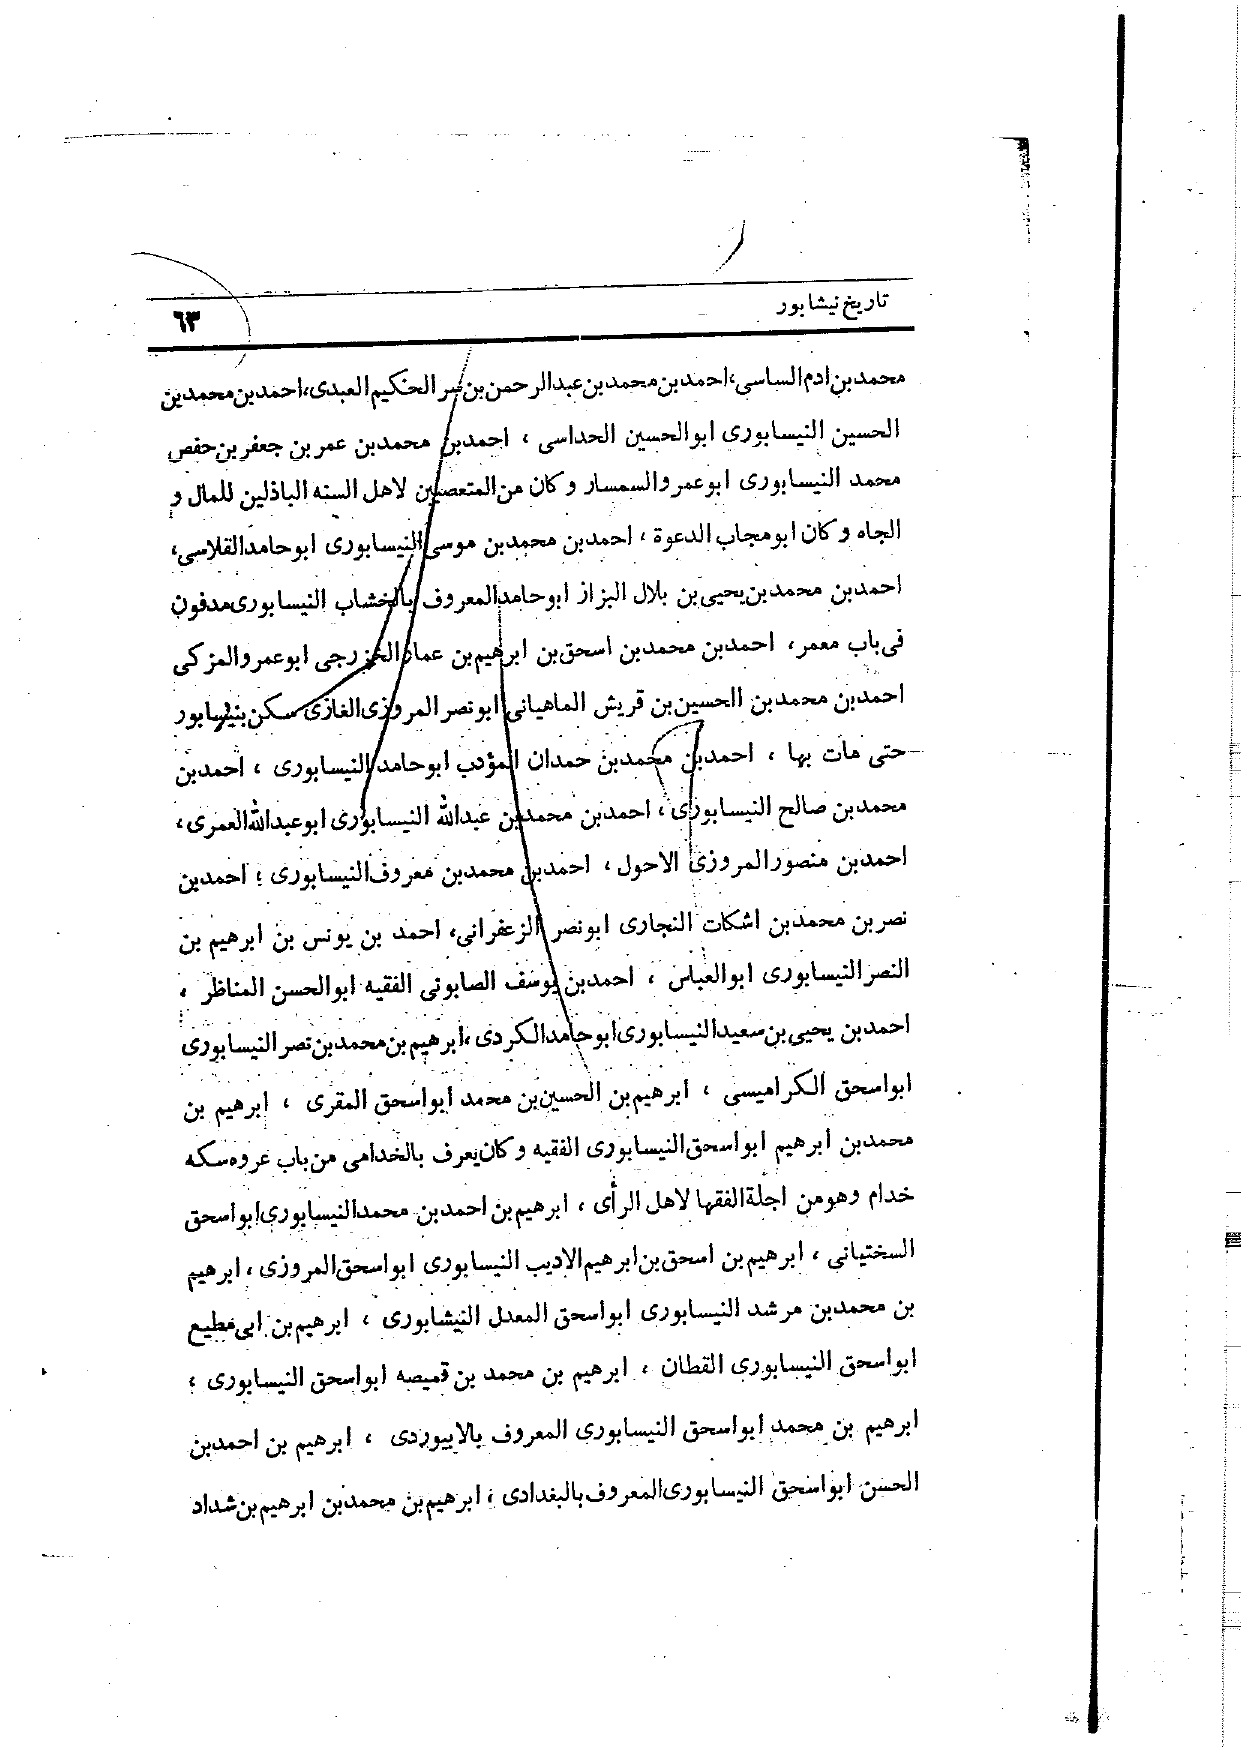 تاریخ نیشابور
۶۳
محمدبن ادم الساسی، احمدبن محمدبن عبدالرحمن بن الحکیم العبدی، احمدبن محمدبن
الحسین النیسابوری ابوالحسین الحداسی ، احمدبن محمدبن عمربن جعفربن حفص
محمد النیسابوری ابوعمروالسمسار وکان من المتعصبین لاهل السنه الباذلین للمال و
الجاه وکان ابومجاب الدعوة ، احمدبن محمدبن موسی النیسابوری ابوحامدالقلاسی،
احمدبن محمدبن یحیی بن بلال البزاز ابوحامدالمعروف بالخشاب النیسابوری مدفون
فی باب معمر، احمدبن محمدبن اسحق بن ابرهیم بن عمار الخزرجی ابوعمروالمزکی
احمدبن محمدبن الحسین بن قریش الماهیانی ابونصرالمروزی الغازی سکن بنیسابور
حتی مات بها ، احمدبن محمدبن حمدان المؤدب ابوحامد النیسابوری ، احمدبن
محمدبن صالح النیسابوری ، احمدبن محمدبن عبدالله النیسابوری ابوعبدالله العمری،
احمدبن منصورالمروزی الاحول ، احمدبن محمدبن معروف النیسابوری ؛ احمدبن
نصربن محمدبن اشکات النجاری ابونصر الزعفرانی، احمد بن یونس بن ابرهیم بن
النصرالنیسابوری ابوالعباس ، احمدبن یوسف الصابونی الفقیه ابوالحسن المناظر ،
احمدبن یحیی بن سعیدالنیسابوری ابوحامدالکردی ،ابرهیم بن محمدبن نصرالنیسابوری
ابواسحق الکرامیسی ، ابرهیم بن الحسین بن محمد ابواسحق المقری ، ابرهیم بن
محمدبن ابرهیم ابواسحق النیسابوری الفقیه وکان یعرف بالخدامی من باب عروه سکه
خدام وهومن اجلة الفقها لاهل الرأی ، ابرهیم بن احمدبن محمدالنیسابوری ابواسحق
السختیانی ، ابرهیم بن اسحق بن ابرهیم الادیب النیسابوری ابواسحق المروزی ، ابرهیم
بن محمدبن مرشد النیسابوری ابواسحق المعدل النیشابوری ، ابرهیم بن ابی مطیع
ابواسحق النیسابوری القطان ، ابرهیم بن محمد بن قمیصه ابواسحق النیسابوری ؛
ابرهیم بن محمد ابواسحق النیسابوری المعروف بالابیوردی ، ابرهیم بن احمدبن
الحسن ابواسحق النیسابوری المعروف بالبغدادی ، ابرهیم بن محمدبن ابرهیم بن شداد